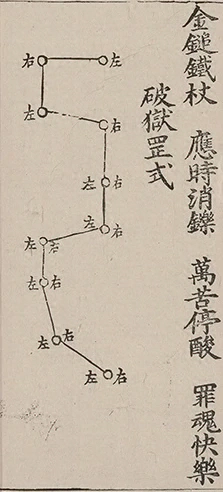 金鎚鐵杖 應時消鑠 萬苦停酸 罪魂快樂
破獄罡式
右 左
左
右
左 右
左 右
左 右
左 右
右
左
左 右